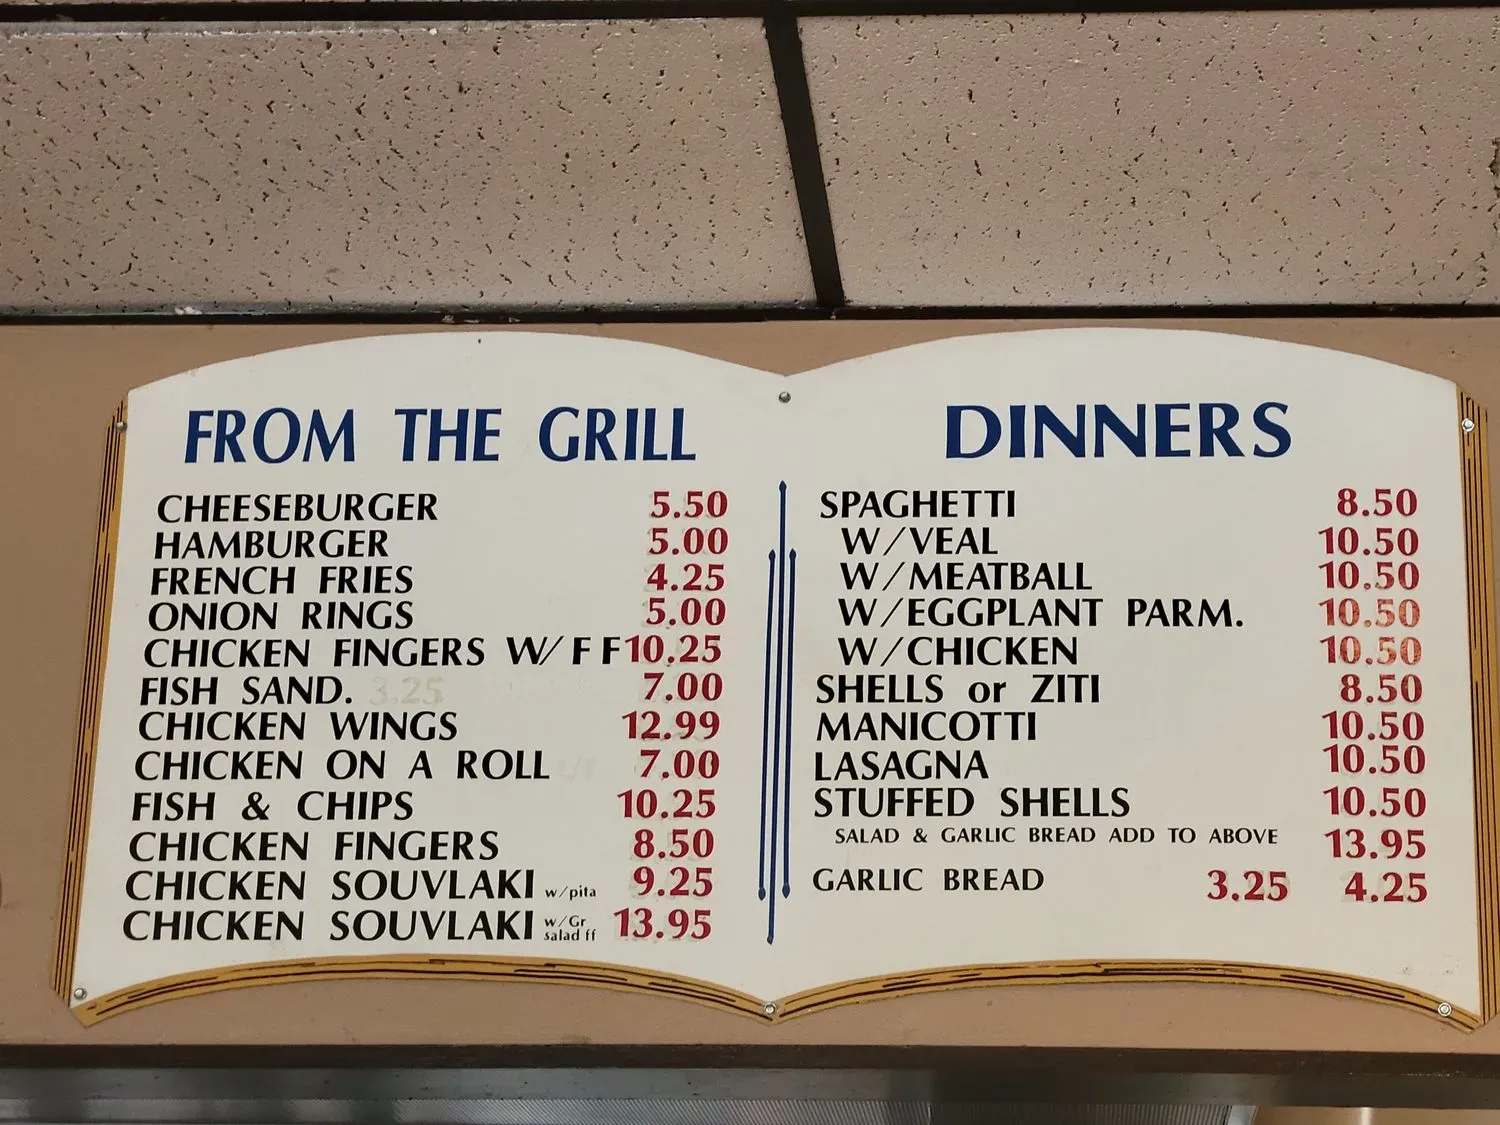 FROM THE GRILL
CHEESEBURGER 5.50
HAMBURGER 5.00
FRENCH FRIES 4.25
ONION RINGS 5.00
CHICKEN FINGERS W/ F F 10.25
FISH SAND. 3.25 7.00
CHICKEN WINGS 12.99
CHICKEN ON A ROLL 7.00
FISH & CHIPS 10.25
CHICKEN FINGERS 8.50
CHICKEN SOUVLAKI w/pita 9.25
CHICKEN SOUVLAKI w/Gr salad ff 13.95
DINNERS
SPAGHETTI 8.50
W/VEAL 10.50
W/MEATBALL 10.50
W/EGGPLANT PARM. 10.50
W/CHICKEN 10.50
SHELLS or ZITI 8.50
MANICOTTI 10.50
LASAGNA 10.50
STUFFED SHELLS 10.50
SALAD & GARLIC BREAD ADD TO ABOVE 13.95
GARLIC BREAD 3.25 4.25